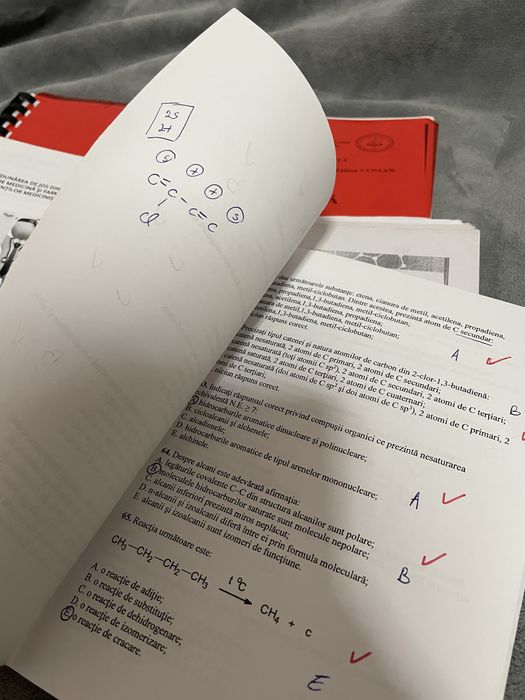 25
27
S
+
+
S
C = C - C = C
Cl
DUNAREA DE JOS DIN
DE MEDICINĂ ȘI FARM
ENȚILOR MEDICINIȘTI
COMAN
următoarele substanțe: etena, cianura de metil, acetilena, propadiena,
metil-ciclobutan. Dintre acestea, prezintă atom de C secundar:
propadiena,1,3-butadiena, metil-ciclobutan;
acetilena,1,3-butadiena, propadiena;
de metil,1,3-butadiena, metil-ciclobutan;
1,3-butadiena, metil-ciclobutan;
răspuns corect.
A
Precizați tipul catenei și natura atomilor de carbon din 2-clor-1,3-butadienă:
catenă nesaturată, 2 atomi de C primari, 2 atomi de C secundari;
catenă nesaturată (toți atomii C sp²), 2 atomi de C secundari, 2 atomi de C terțiari;
catenă saturată, 2 atomi de C terțiari, 2 atomi de C cuaternari;
catenă nesaturată (doi atomi de C sp² și doi atomi de C sp³), 2 atomi de C primari, 2
de C terțiari;
niciun răspuns corect.
B
Indicați răspunsul corect privind compușii organici ce prezintă nesaturarea
echivalentă N.E. ≥ 7:
A. hidrocarburile aromatice dinucleare și polinucleare;
B. cicloalcanii și alchenele;
C. alcadienele;
D. hidrocarburile aromatice de tipul arenelor mononucleare;
E. alchinele.
A
64. Despre alcani este adevărată afirmația:
A. legăturile covalente C–C din structura alcanilor sunt polare;
B. moleculele hidrocarburilor saturate sunt molecule nepolare;
C. alcanii inferiori prezintă miros neplăcut;
D. n-alcanii și izoalcanii diferă între ei prin formula moleculară;
E. alcanii și izoalcanii sunt izomeri de funcțiune.
B
65. Reacția următoare este:
CH₃—CH₂—CH₂—CH₃ t °C CH₄ + c
A. o reacție de adiție;
B. o reacție de substituție;
C. o reacție de dehidrogenare;
D. o reacție de izomerizare;
E. o reacție de cracare.
E